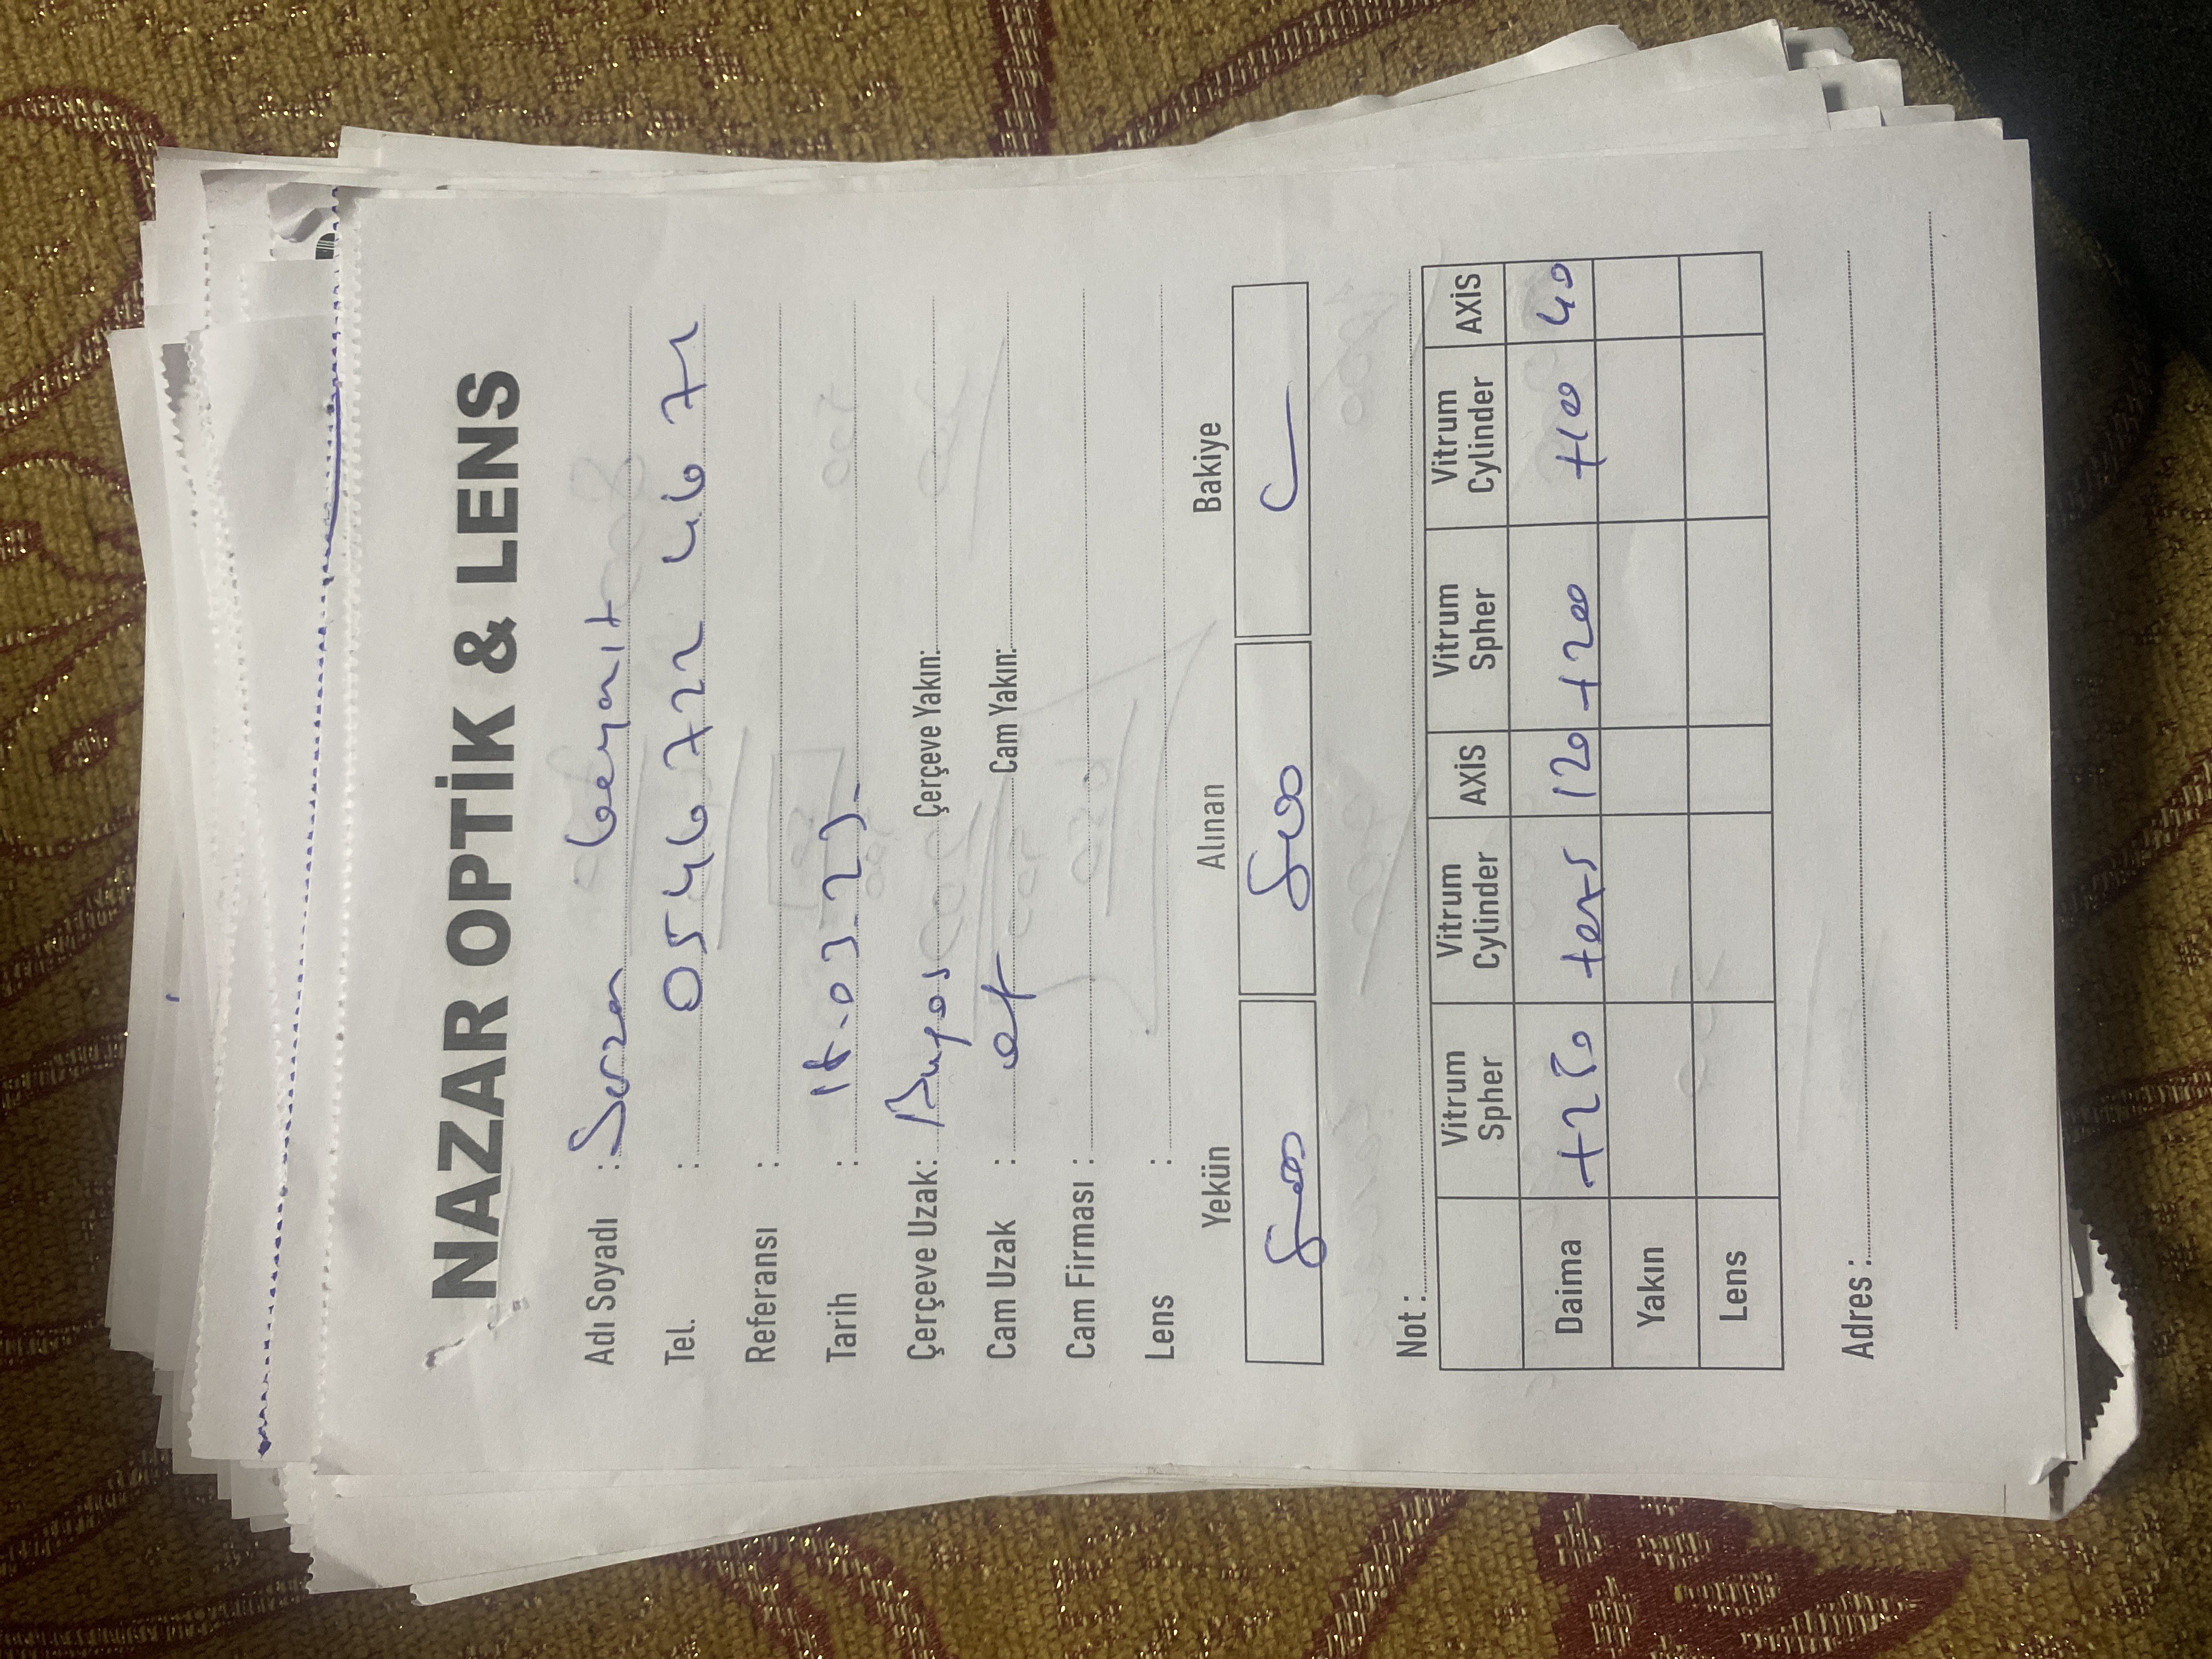 NAZAR OPTİK & LENS
Adı Soyadı : Sezen beyazıt
Tel. : 0546 722 46 71
Referansı :
Tarih : 18.03.23.
Çerçeve Uzak: Çerçeve Yakın:
Cam Uzak : Cam Yakın:
Cam Firması :
Lens :
Yekün Alınan Bakiye
800 800
Not :
Vitrum Spher Vitrum Cylinder AXİS Vitrum Spher Vitrum Cylinder AXİS
Daima +250 +075 120 +200 +100 40
Yakın
Lens
Adres :